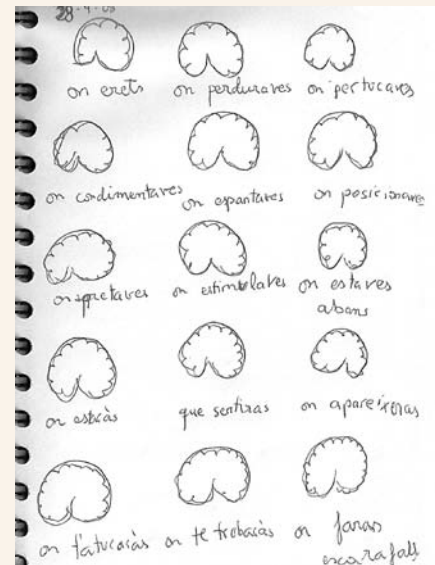 28-4-08
on erets on perduraves on pertucaves
on condimentaves on espantaves on posicionaves
on apretaves on estimulaves on estaves
abans
on estràs que sentiras on apareixeras
on t'atucaràs on te trobaràs on faras
escarafalls